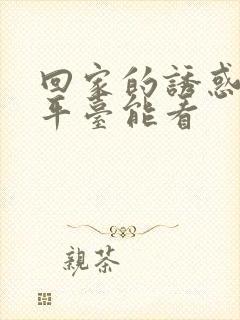 回家的誘惑
平臺能看
親茶